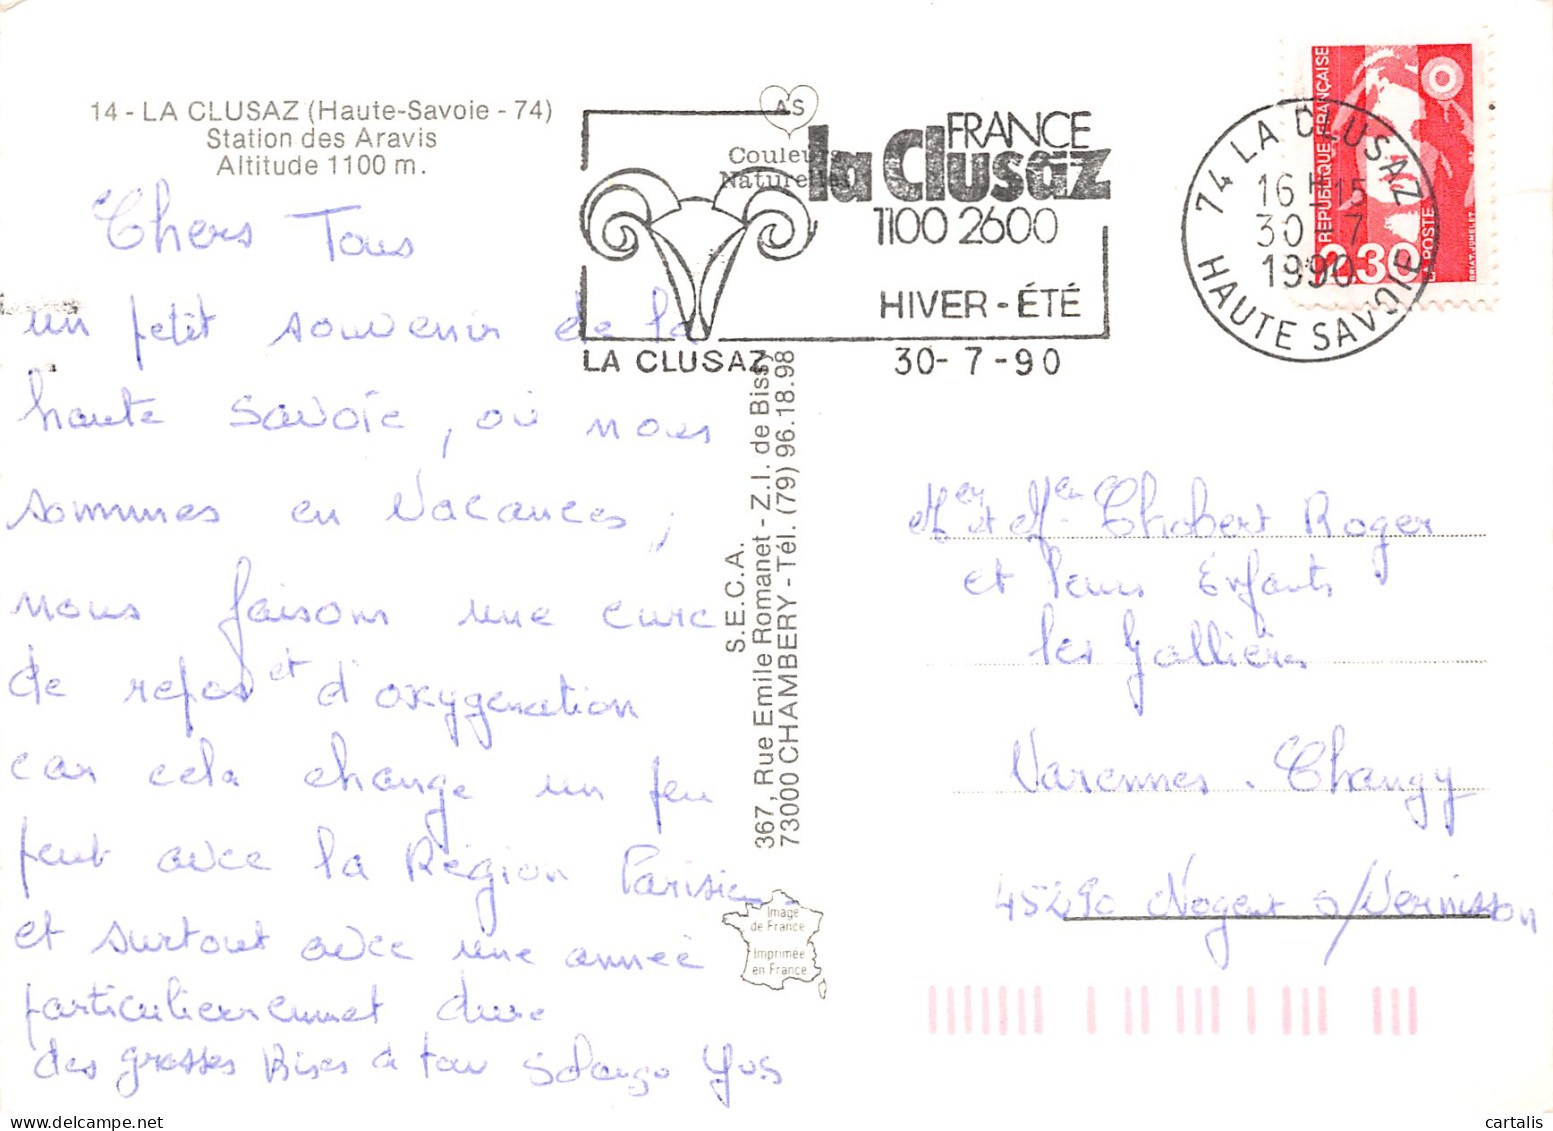 14 - LA CLUSAZ (Haute-Savoie - 74)
Station des Aravis
Altitude 1100 m.
Chers Tous
un petit souvenir de la
haute Savoie, où nous
sommes en Vacances,
nous faisons une cure
de repos et d'oxygenation
car cela change un peu
peut avec la Région Parisienne
et surtout avec une année
particulierement dure
des grosses Bises à tous Solange Yves
AS
Couleurs
Naturelles
FRANCE
la Clusaz
1100 2600
HIVER - ÉTÉ
LA CLUSAZ 30-7-90
74 LA CLUSAZ
16H15
30-7
1990
HAUTE SAVOIE
RÉPUBLIQUE FRANÇAISE
2.30
LA POSTE
BRIAT.JUMELET
S.E.C.A.
367, Rue Emile Romanet - Z.I. de Bissy
73000 CHAMBERY - Tél. (79) 96.18.98
Image
de France
Imprimée
en France
Mer et Me Chobert Roger
et leurs Enfants
les Gallières
Varennes. Changy
45290 Nogent s/Vernisson
cartalis